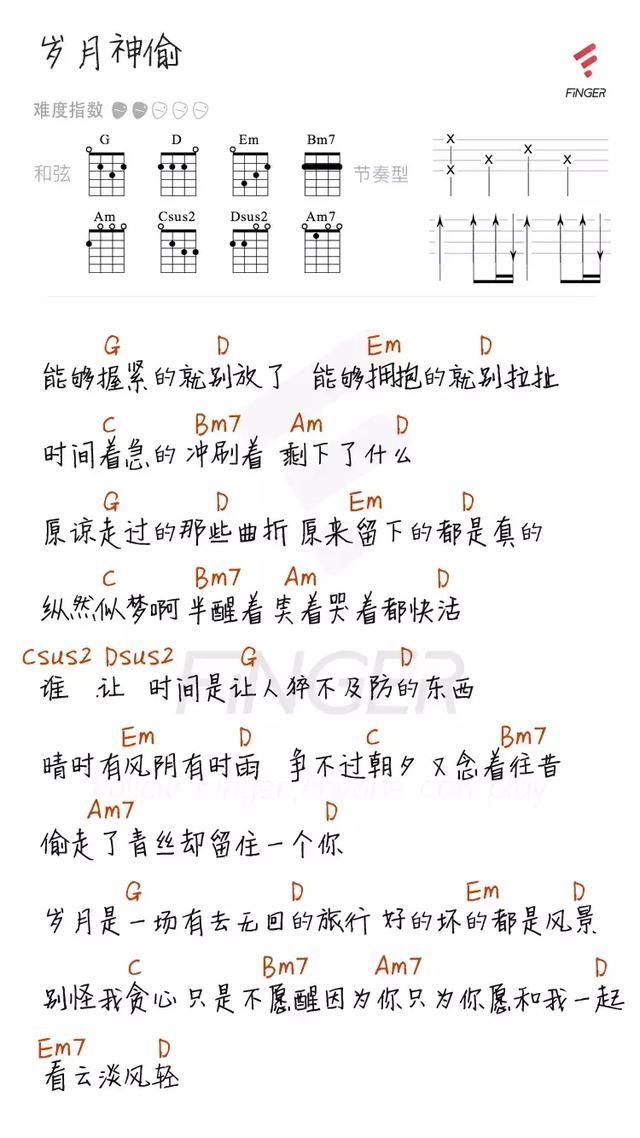 岁月神偷
FiNGER
难度指数
和弦
G D Em Bm7
节奏型
Am Csus2 Dsus2 Am7
G D Em D
能够握紧的就别放了 能够拥抱的就别拉扯
C Bm7 Am D
时间着急的 冲刷着 剩下了什么
G D Em D
原谅走过的那些曲折 原来留下的都是真的
C Bm7 Am D
纵然似梦啊 半醒着 笑着哭着都快活
Csus2 Dsus2 G D
谁 让 时间是让人猝不及防的东西
FiNGER
Em D C Bm7
晴时有风阴有时雨 争不过朝夕 又念着往昔
Follow Finger, Anyone can play
Am7 D
偷走了青丝却留住一个你
G D Em D
岁月是一场有去无回的旅行 好的坏的都是风景
C Bm7 Am7 D
别怪我贪心 只是不愿醒因为你只为你愿和我一起
Em7 D
看云淡风轻